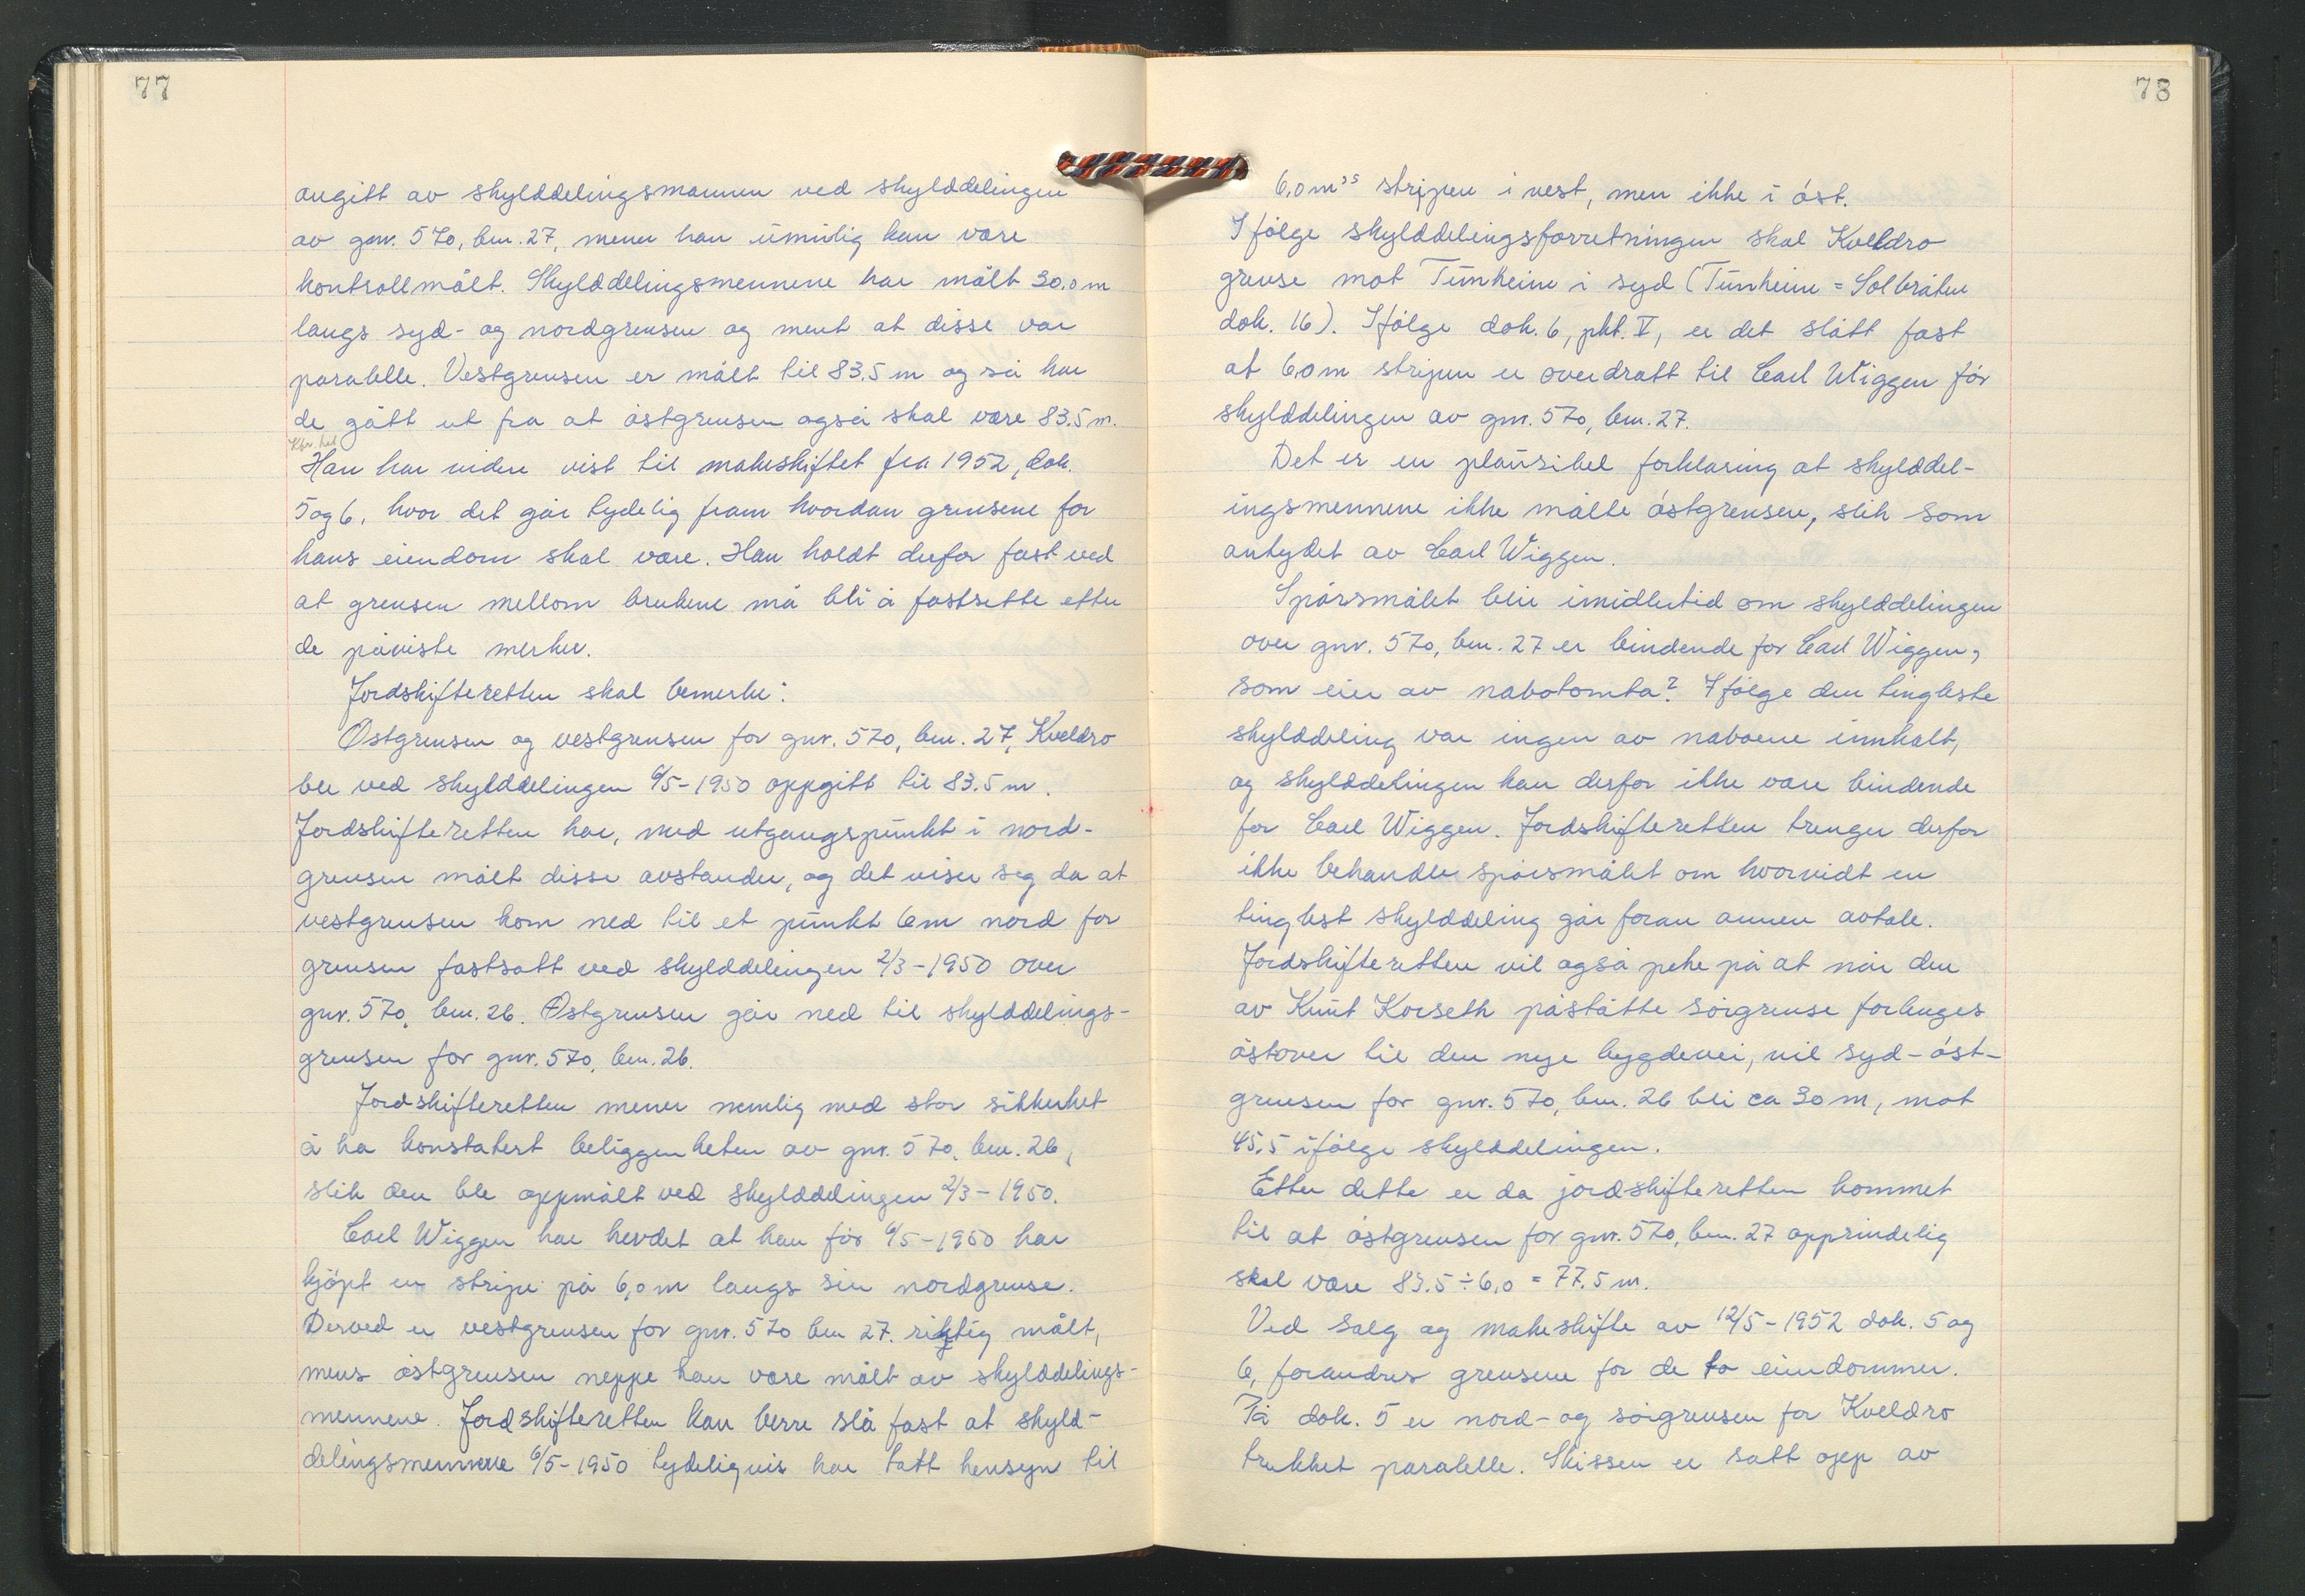 77
angitt av skylddelingsmannen ved skylddelingen
av gnr. 570, bnr. 27, mener han umulig kan være
kontrollmålt. Skylddelingsmennene har målt 30,0 m
langs syd- og nordgrensen og ment at disse var
paralelle. Vestgrensen er målt til 83,5 m og så har
de gått ut fra at östgrensen også skal være 83.5 m.
Han har videre vist til makeskiftet fra 1952, dok.
5 og 6, hvor det går tydelig fram hvordan grensene for
hans eiendom skal være. Han holdt derfor fast ved
at grensen mellom brukene må bli å fastsette etter
de påviste merker.
Jordskifteretten skal bemerke:
Östgrensen og vestgrensen for gnr. 570, bnr. 27, Kveldro
ble ved skylddelingen 6/5-1950 oppgitt til 83.5 m.
Jordskifteretten har, med utgangspunkt i nord-
grensen målt disse avstander, og det viser seg da at
vestgrensen kom ned til et punkt 6m nord for
grensen fastsatt ved skylddelingen 2/3-1950 over
gnr. 570, bnr. 26. Östgrensen går ned til skylddelings-
grensen for gnr. 570, bnr. 26.
Jordskifteretten mener nemlig med stor sikkerhet
å ha konstatert beliggenheten av gnr. 570, bnr. 26,
slik den ble oppmålt ved skylddelingen 2/3-1950.
Carl Wiggen har hevdet at han för 6/5-1950 har
kjöpt en stripe på 6,0 m langs sin nordgrense.
Derved er vestgrensen for gnr. 570 bnr 27. riktig målt,
mens östgrensen neppe kan være målt av skylddelings-
mennene. Jordskifteretten kan berre slå fast at skyld-
delingsmennene 6/5-1950 tydeligvis har tatt hensyn til
78
6,0 m's stripen i vest, men ikke i öst.
Ifölge skylddelingsforretningen skal Kveldro
grense mot Tunheim i syd (Tunheim = Solbråten
dok. 16). Ifölge dok. 6, pkt. V, er det slått fast
at 6,0 m stripen er overdratt til Carl Wiggen för
skylddelingen av gnr. 570, bnr. 27.
Det er en plausibel forklaring at skylddel-
ingsmennene ikke målte östgrensen, slik som
antydet av Carl Wiggen.
Spörsmålet blir imidlertid om skylddelingen
over gnr. 570, bnr. 27 er bindende for Carl Wiggen,
som eier av nabotomta? Ifölge den tingleste
skylddeling var ingen av naboene innkalt,
og skylddelingen kan derfor ikke være bindende
for Carl Wiggen. Jordskifteretten trenger derfor
ikke behandle spörsmålet om hvorvidt en
tinglest skylddeling går foran annen avtale.
Jordskifteretten vil også peke på at når den
av Knut Korseth påståtte sörgrense forlenges
östover til den nye bygdevei, vil syd-öst-
grensen for gnr. 570, bnr. 26 bli ca 30 m, mot
45,5 ifölge skylddelingen.
Etter dette er da jordskifteretten kommet
til at östgrensen for gnr. 570, bnr. 27 opprindelig
skal være 83.5 ÷ 6,0 = 77.5 m.
Ved salg og makeskifte av 12/5-1952 dok. 5 og
6, forandres grensene for de to eiendommer.
På dok. 5 er nord- og sörgrensen for Kveldro
trukket paralelle. Skissen er satt opp av